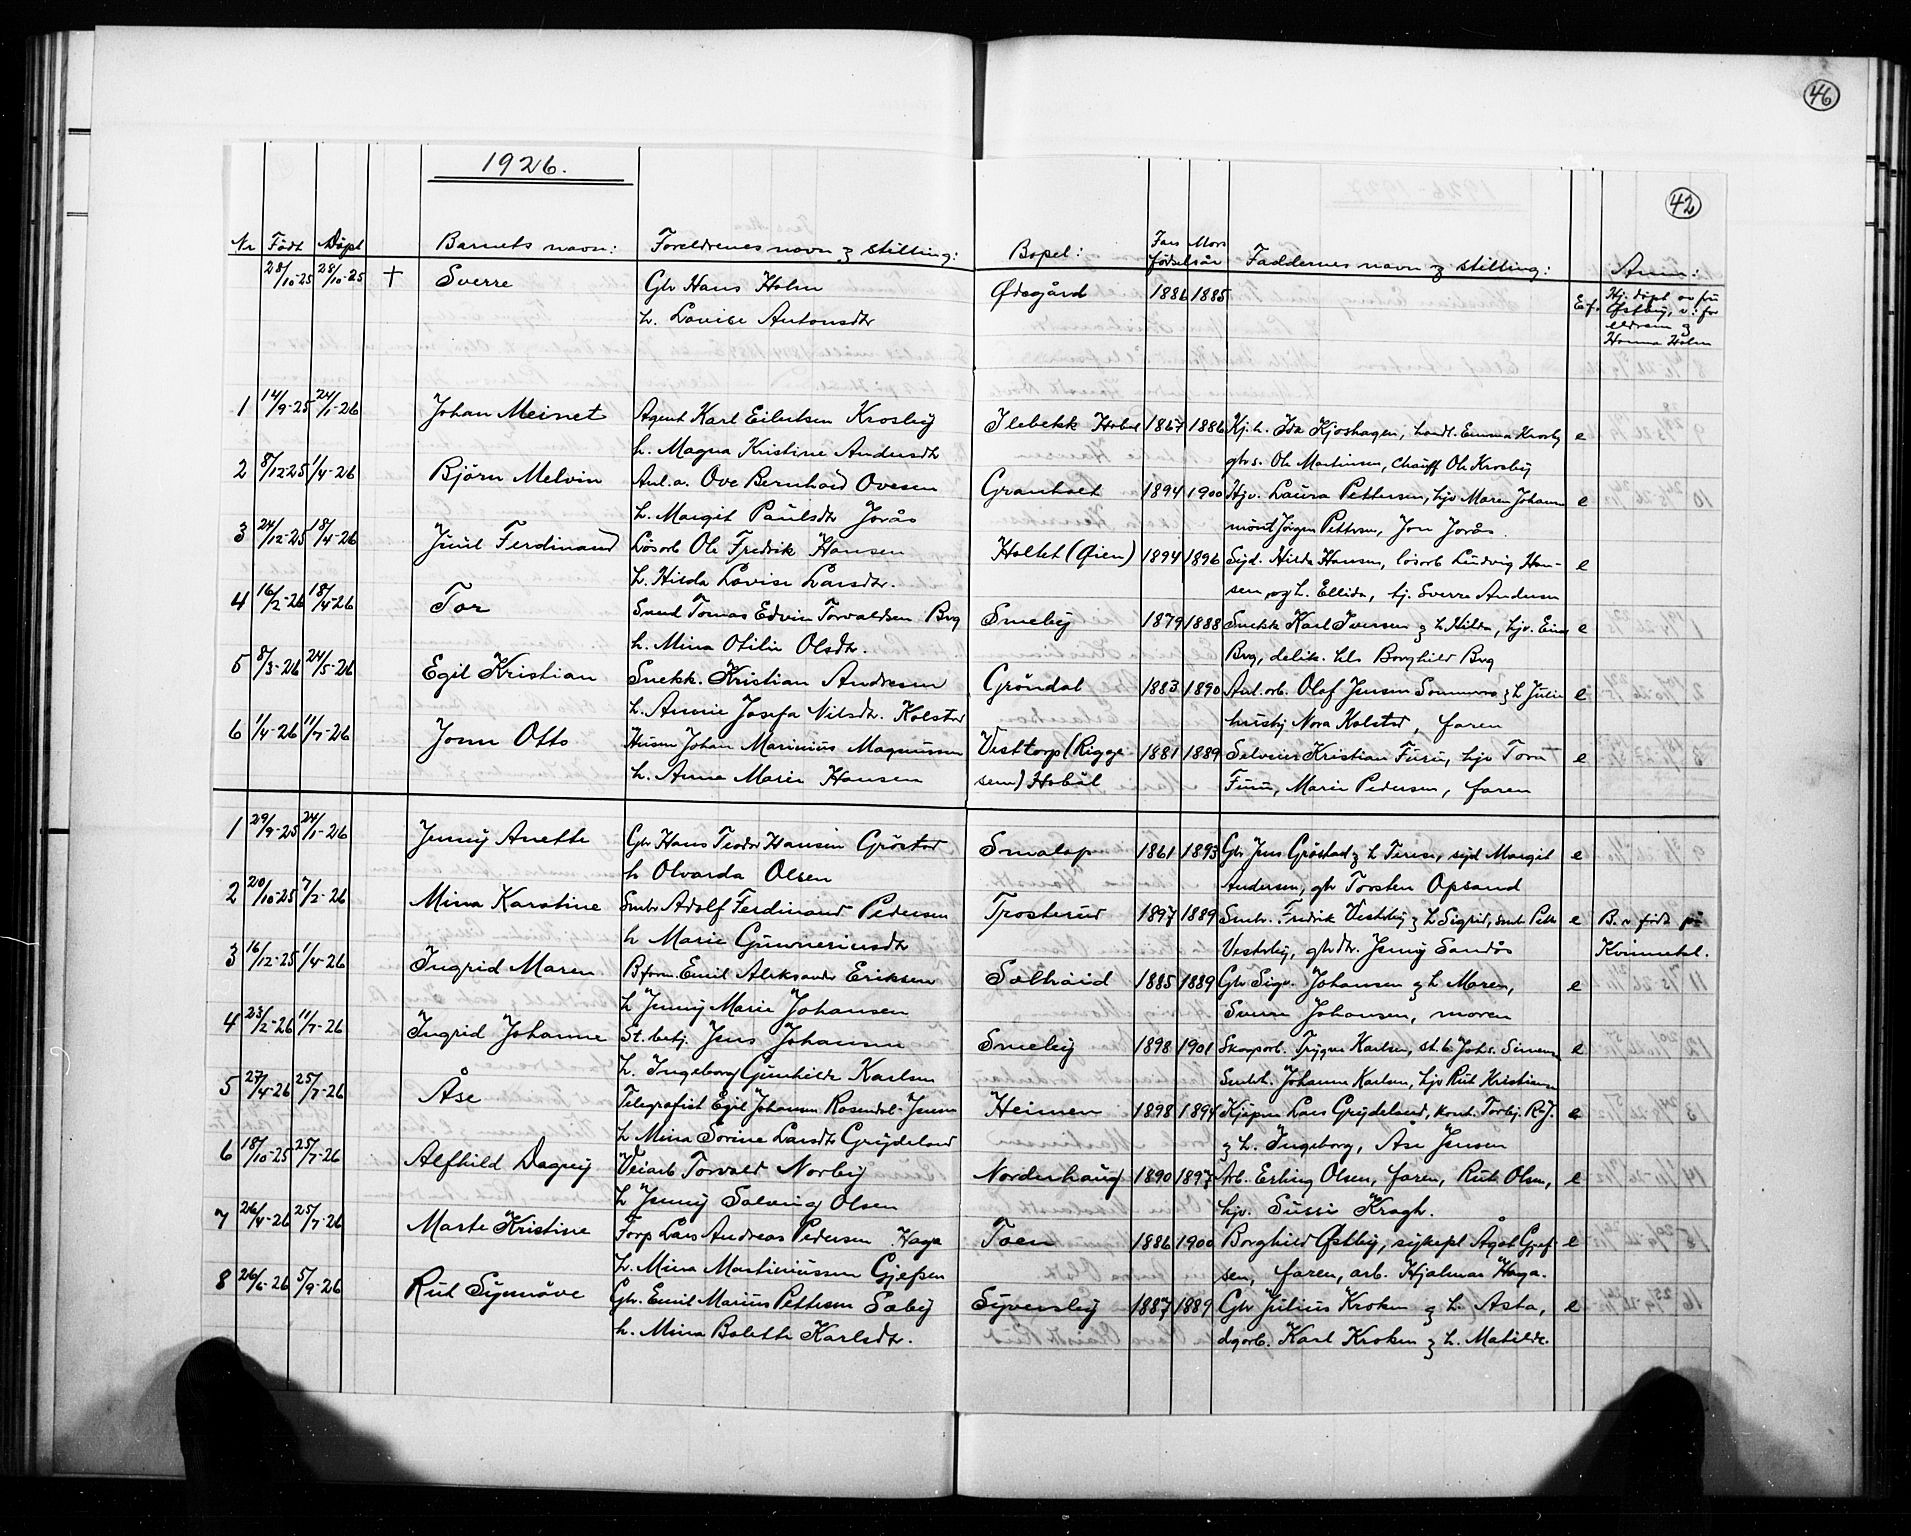 46
1926.
42
Nr Født Døpt Barnets navn: Foreldrenes navn og stilling: Bopel: Fars Mors fødselsår Faddernes navn og stilling: Anm:
28/10-25 28/10-25 + Sverre Gbr Hans Holm Ødegård 1886 1885 E.f. Hj. døpt av fru
h. Lovise Antonsdtr Østby, v: for
eldrene og
Hanna Holm
1 14/9-25 24/1-26 Johan Meinet Agent Karl Eilertsen Krosby Ilebekk Hobøl 1867 1886 Kj. h. Ida Kjoshagen, handl. Emma Krosby e
h. Magna Kristine Andersdtr gbrs. Ole Martinsen, chauff Ole Krosby
2 8/12 25 1/4-26 Bjørn Melvin Anl. a. Ove Bernhard Ovesen Granholt 1894 1900 Hjv. Laura Pettersen, hjv Maren Johanne e
h. Margit Paulsdtr Jorås mont Jørgen Pettersen, Jon Jorås
3 24/12-25 18/4-26 Juul Ferdinand Løsarb Ole Fredrik Hansen Holtet (Øien) 1894 1896 Syd. Hilda Hansen, løsarb Ludvig Han-
e
h. Hilda Lovise Larsdtr. sen, og h. Ellida, tj. Sverre Andersen
4 16/2-26 18/4-26 Tor Smed Tomas Edvin Torvaldsen Brg Smeby 1879 1888 Snekk Karl Iversen og h Hilda, hjv. Eina e
h. Mina Otilie Olsdtr. Brg, delik. hls Borghild Brg
5 8/3-26 24/5-26 Egil Kristian Snekk. Kristian Andresen Grøndal 1883 1890 Anl. arb. Olaf Jensen Sommero og h Julie e
h. Annie Josefa Nilsdtr. Kolstad husbj Nora Kolstad, faren
6 1/4-26 11/7-26 Jonn Otto Husm Johan Marinius Magnussen Vesttorp (Rigge 1881 1889 Selveier Kristian Furu, hjv Tora e
h. Anne Marie Hansen sem) Hobøl Furu, Marie Pedersen, faren
1 29/9-25 24/1-26 Jenny Anette Gbr Hans Teodor Hansen Grøstad Smalop 1861 1893 Gbr Jens Grøstad og h Terese, syd Margit e
h Olvarda Olsen Andersen, gbr Torsten Opsand
2 20/10-25 7/2-26 Mina Karstine Smbr Adolf Ferdinand Pedersen Trosterud 1897 1889 Smbr. Fredrik Vestby og h Sigrid, smbr Petter e B. er født på
h Marie Gunneriusdtr Vestby, gbrdtr. Jenny Sandås Kvinnekl.
3 16/12-25 1/4-26 Ingrid Maren Bform. Emil Aleksander Eriksen Solhaid 1885 1889 Gbr Sigv. Johansen og h Maren, e
h Jenny Marie Johansen Sverre Johansen, moren
4 23/2-26 11/7-26 Ingrid Johanne St. betj. Jens Johansen Smeby 1898 1901 Skoparb. Trygve Karlsen, st. b. Johs. Simensen e
h. Ingeborg Gunhilde Karlsen Smbrh. Johanne Karlsen, hjv Rut Kristiansen
5 27/4-26 25/7-26 Åse Telegrafist Egil Johansen Rosendal-Jensen Heimen 1898 1894 Kjøpm Lars Grydeland, kont. Torbj. R-J. e
h Mina Sorine Larsdtr Grydeland og h. Ingeborg, Åse Jensen
6 18/10-25 25/7-26 Alfhild Dagny Veiarb Torvald Norby Norderhaug 1890 1897 Arb. Erling Olsen, faren, Rut Olsen, e
h Jenny Solveig Olsen hjv. Sussi Kragh.
7 26/4-26 25/7-26 Marte Kristine Forp Lars Andreas Pedersen Haga Toen 1886 1900 Borghild Østby, sykepl Ågot Gjef- e
h. Mina Martiniussen Gjefsen sen, faren, arb. Hjalmar Haga.
8 26/6-26 5/9-26 Rut Synnøve Gbr. Emil Marius Pettersen Sæby Syversby 1887 1889 Gbr Julius Kroken og h. Asta, e
h. Mina Bolette Karlsdtr. dgarb. Karl Kroken og h. Matilde.